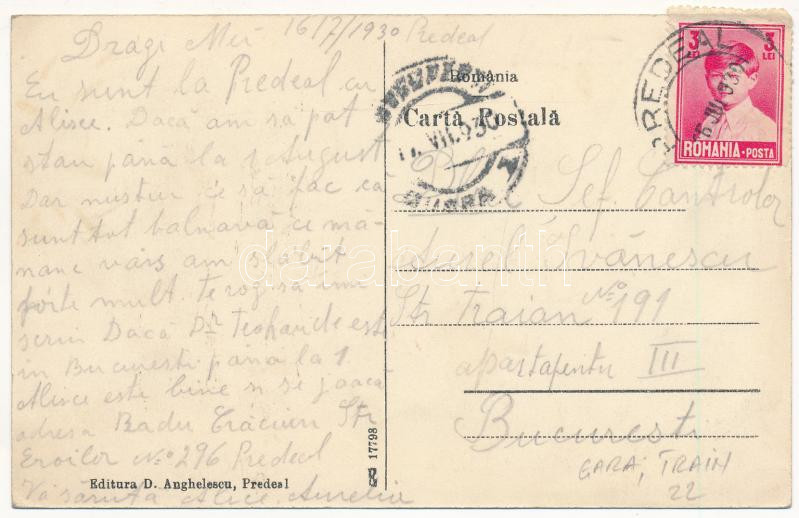 16/7/1930 Predeal
Dragi Mei
Eu sunt la Predeal cu
Alisce. Dacă am să pot
stau până la 1 August
Dar nustiu ce să fac că
sunt tot bolnavă ce mă-
nanc vărs am slăbit
forte mult. te rog să imi
scrii Dacă Dr Teoharide est
in Bucuresti pana la 1.
Alisce este bine si se joacă
adresa Radu Crăciun Str
Eroilor No 296 Predeal
Vă săruta Alice. Aurelia
Editura D. Anghelescu, Predeal
17798
România
Carta Postală
VII.930
PREDEAL
3 LEI 3 LEI
ROMANIA·POSTA
Sef. Controlor
Aurel Ivănescu
Str Traian No 191
apartamentu III
Bucuresti
GARA, TRAIN
22
darabanth